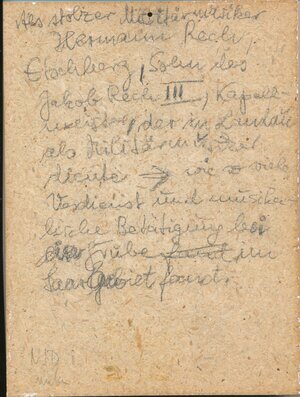 Als stolzer Militärmusiker
Hermann Rech,
Eschberg, Sohn des
Jakob Rech III, Kapell-
meister, der in Landau
als Militärmusiker
diente → wie so viele
Verdienst und musika-
lische Betätigung bei
der Grube fand im
Saargebiet fand.